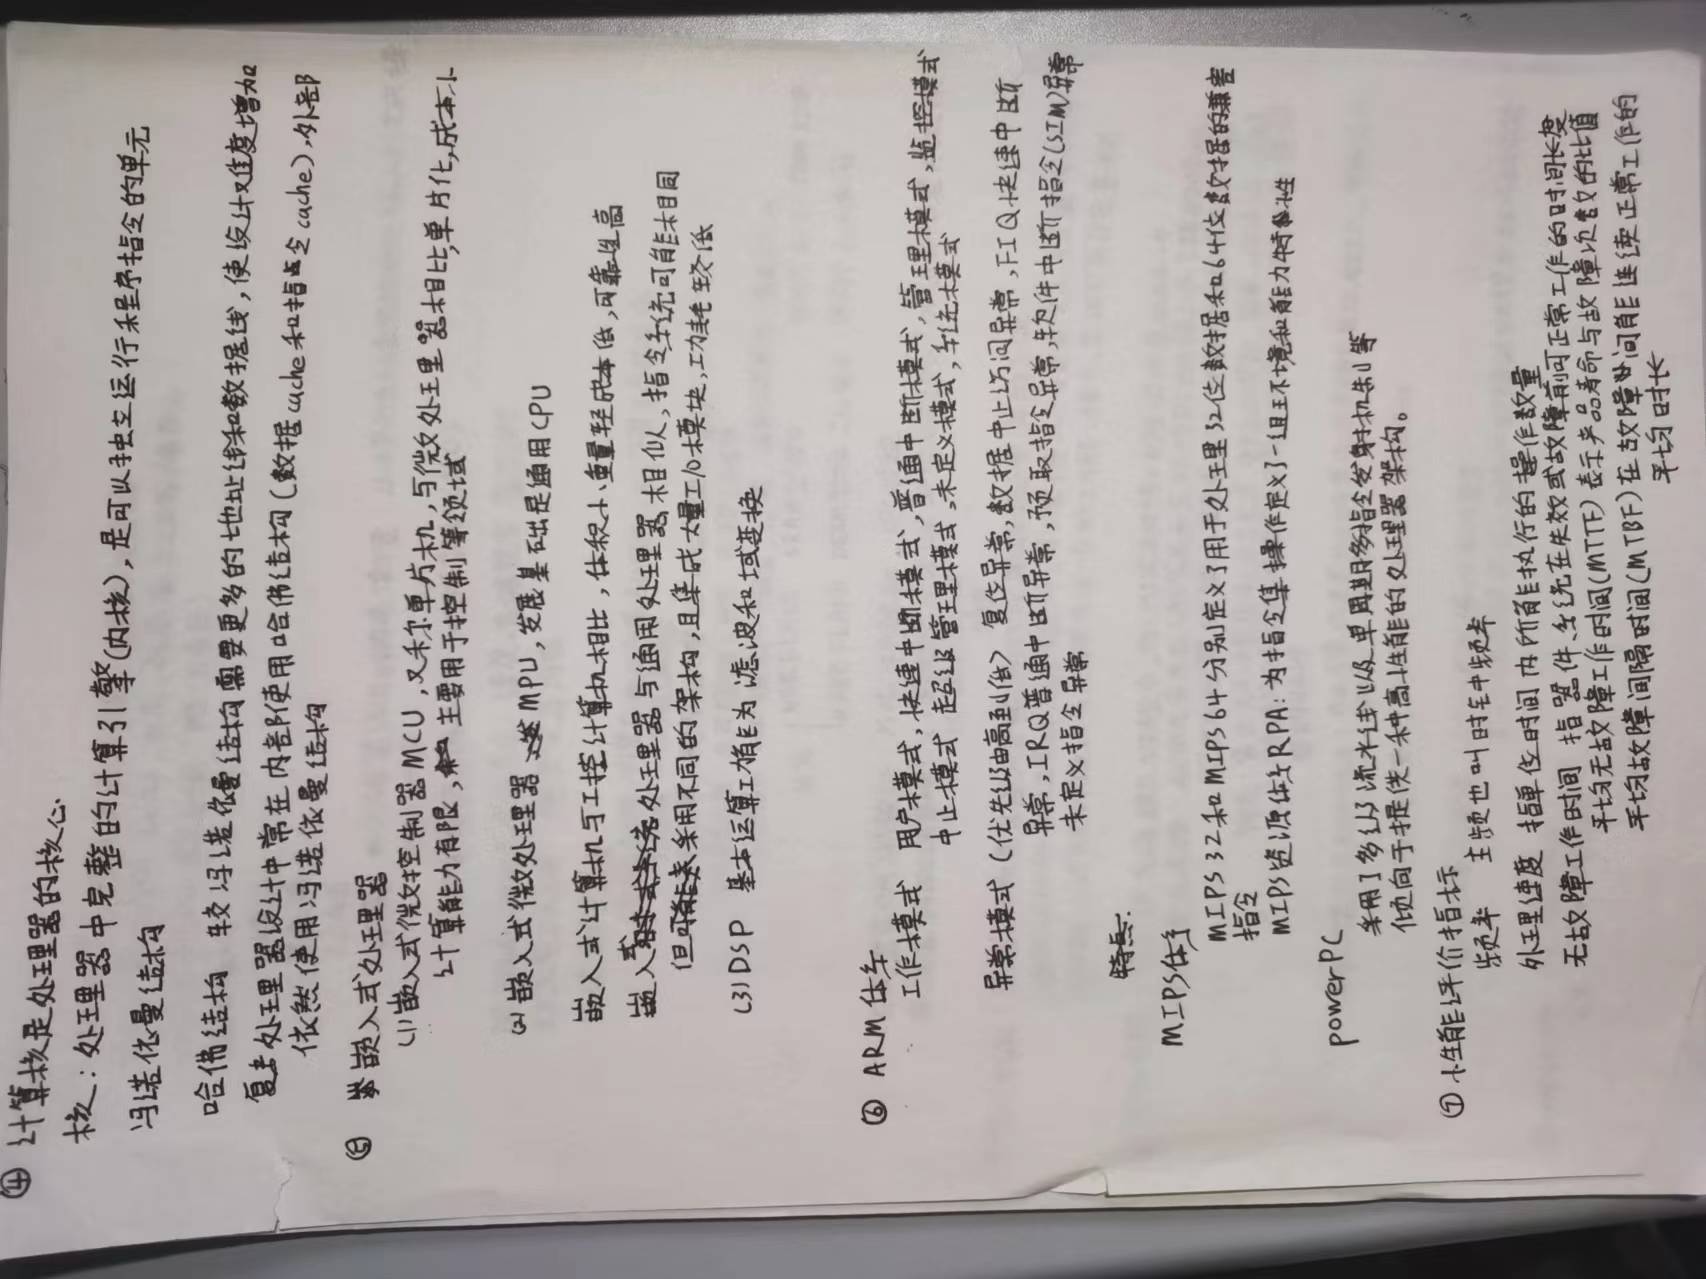 ④ 计算核是处理器的核心
核：处理器中完整的计算引擎(内核)，是可以独立运行程序指令的单元
冯诺依曼结构
哈佛结构 较冯诺依曼结构需要更多的地址线和数据线，使设计难度增加
复杂处理器设计中常在内部使用哈佛结构(数据cache和指令cache)，外部
依然使用冯诺依曼结构
⑤ 嵌入式处理器
(1)嵌入式微控制器MCU，又称单片机，与微处理器相比，单片化，成本小
计算能力有限，主要用于控制等领域
(2)嵌入式微处理器 MPU，发展基础是通用CPU
嵌入式计算机与工控计算机相比，体积小、重量轻成本低，可靠性高
嵌入式处理器与通用处理器相似，指令系统可能相同
但可能采用不同的架构，且集成大量I/O模块，功耗较低
(3)DSP 基本运算功能为滤波和域变换
⑥ ARM体系
工作模式 用户模式，快速中断模式，普通中断模式，管理模式，监控模式
中止模式 超级管理模式，未定义模式，系统模式
异常模式(优先级由高到低) 复位异常，数据中止访问异常，FIQ快速中断
异常，IRQ普通中断异常，预取指令异常，软件中断指令(SIM)异常
未定义指令异常
特点:
MIPS体系
MIPS 32和MIPS64分别定义了用于处理32位数据和64位数据的兼容
指令
MIPS资源体系RPA：为指令集操作定义了一组环境和能力特性
powerPC
采用了多级流水线以及单周期多指令发射机制等
倾向于提供一种高性能的处理器架构。
⑦ 性能评价指标
频率 主频也叫时钟频率
处理速度 指单位时间内所能执行的操作数量
无故障工作时间 指器件、系统在失效或故障前可正常工作的时间长度
平均无故障工作时间(MTTF)表示产品寿命与故障次数的比值
平均故障间隔时间(MTBF)在故障间能连续正常工作的
平均时长